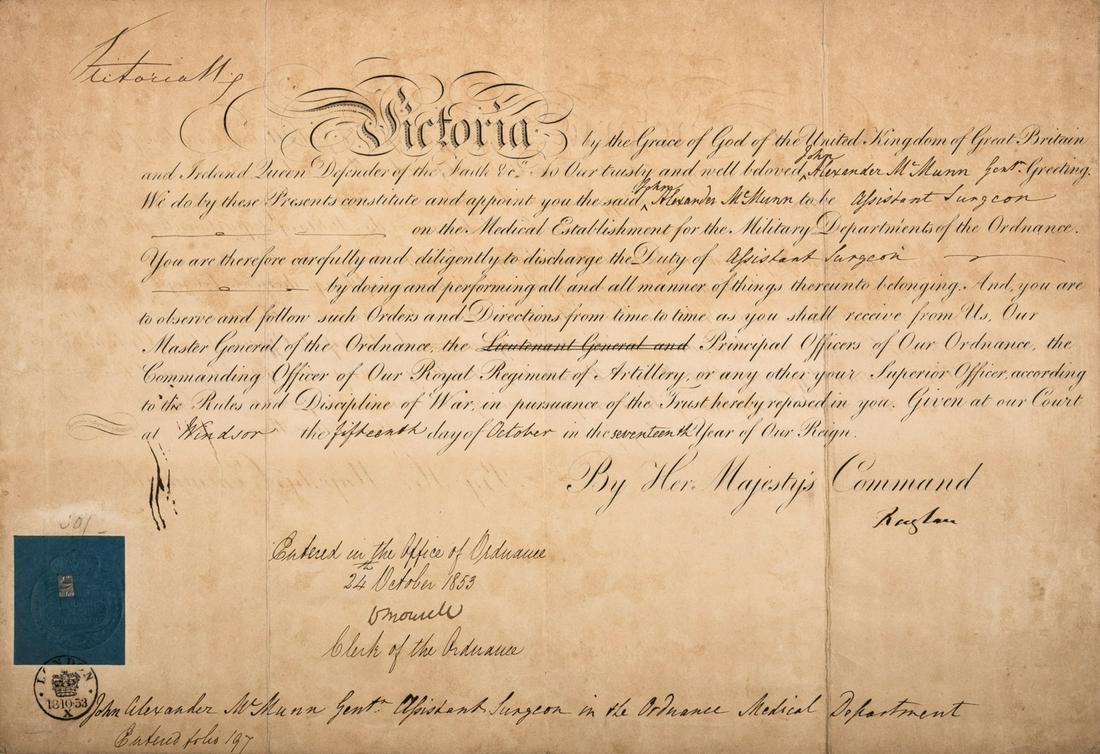 Victoria R
Victoria by the Grace of God of the United Kingdom of Great Britain
and Ireland Queen Defender of the Faith &c.ª To Our trusty and well beloved ^John Alexander McMunn Gentn Greeting.
We do by these Presents constitute and appoint you the said ^John Alexander McMunn to be Assistant Surgeon
on the Medical Establishment for the Military Departments of the Ordnance.
You are therefore carefully and diligently to discharge the Duty of Assistant Surgeon
by doing and performing all and all manner of things thereunto belonging. And, you are
to observe and follow such Orders and Directions from time to time as you shall receive from Us, Our
Master General of the Ordnance, the Lieutenant General and Principal Officers of Our Ordnance, the
Commanding Officer of Our Royal Regiment of Artillery, or any other your Superior Officer, according
to the Rules and Discipline of War, in pursuance of the Trust hereby reposed in you. Given at our Court
at Windsor the fifteenth day of October in the seventeenth Year of Our Reign.
By Her Majesty's Command
Raglan
Entered in the Office of Ordnance
24th October 1853
Clerk of the Ordnance
LONDON
18·10·53
X
John Alexander McMunn Gentn Assistant Surgeon in the Ordnance Medical Department
Entered folio 197